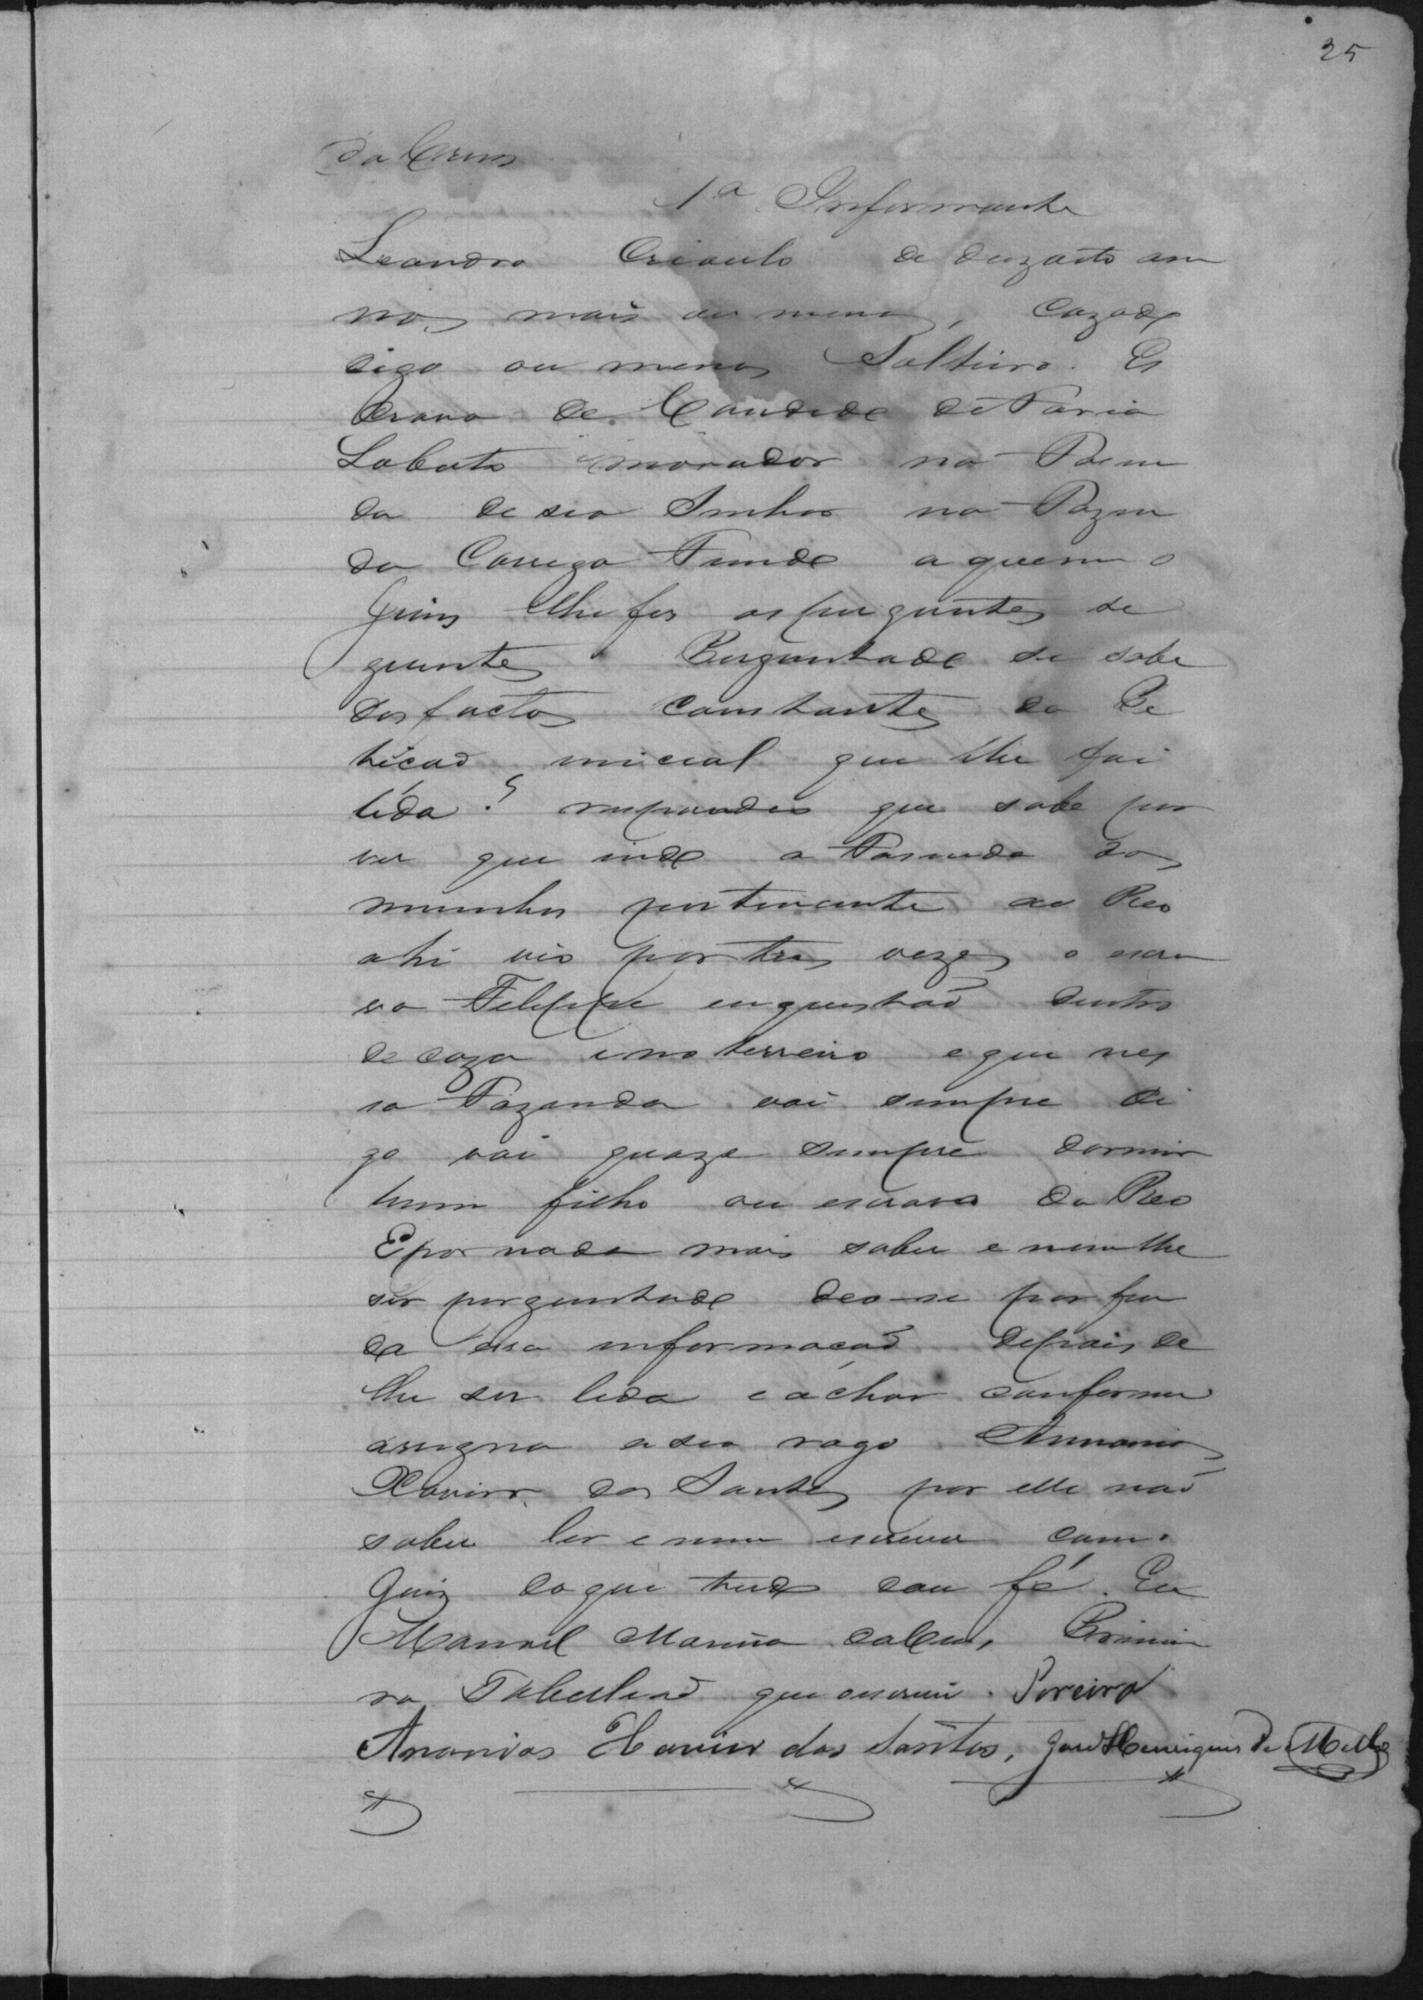 25
da Crus
1ª Informante
Leandro Crioulo de dezoito an
nos mais ou menos, cazado
digo ou menos Solteiro. Es
cravo de Candido de Faria
Lobato morador na Fasen
da de seo Senhor na Fazen
da Corrego Fundo a quem o
Juis lhe fes as perguntas se
guintes Perguntado se sabe
dos factos constantes da Pe
ticaõ inicial que lhe foi
lida? respondeo que sabe por
ver que indo a Fasenda dos
moinhos pertencente ao Reo
ahi vio por tres vezes o escra
vo Felippe em questaõ dentro
de caza e no terreiro e que nes
sa Fazenda vai sempre di
go vai quaze sempre dormir
hum filho ou escravo do Reo
E por nada mais saber e nem lhe
ser perguntado deo-se por fin
da esta informacaõ depois de
lhe ser lida e achar conforme
assigna a seo rogo Annanias
Xavier dos Santos por elle naõ
saber ler e nem escrever com o
Juis do que tudo dou fé. Eu
Manoel Primei
ro Tabeliaõ que escrevi. Pereira
Ananias Xavier dos Santos, José Henriques de Mello